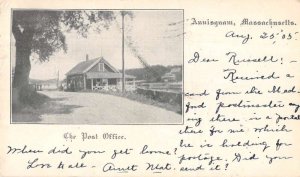 Annisquam, Massachusetts.
Aug. 25, '05
Dear Russell: -
Received a
card from the Med-
ford postmaster say-
ing there is a postal
there for me which
he is holding for
postage. Did you
send it?
The Post Office.
When did you get home?
Love to all - Aunt Nat.